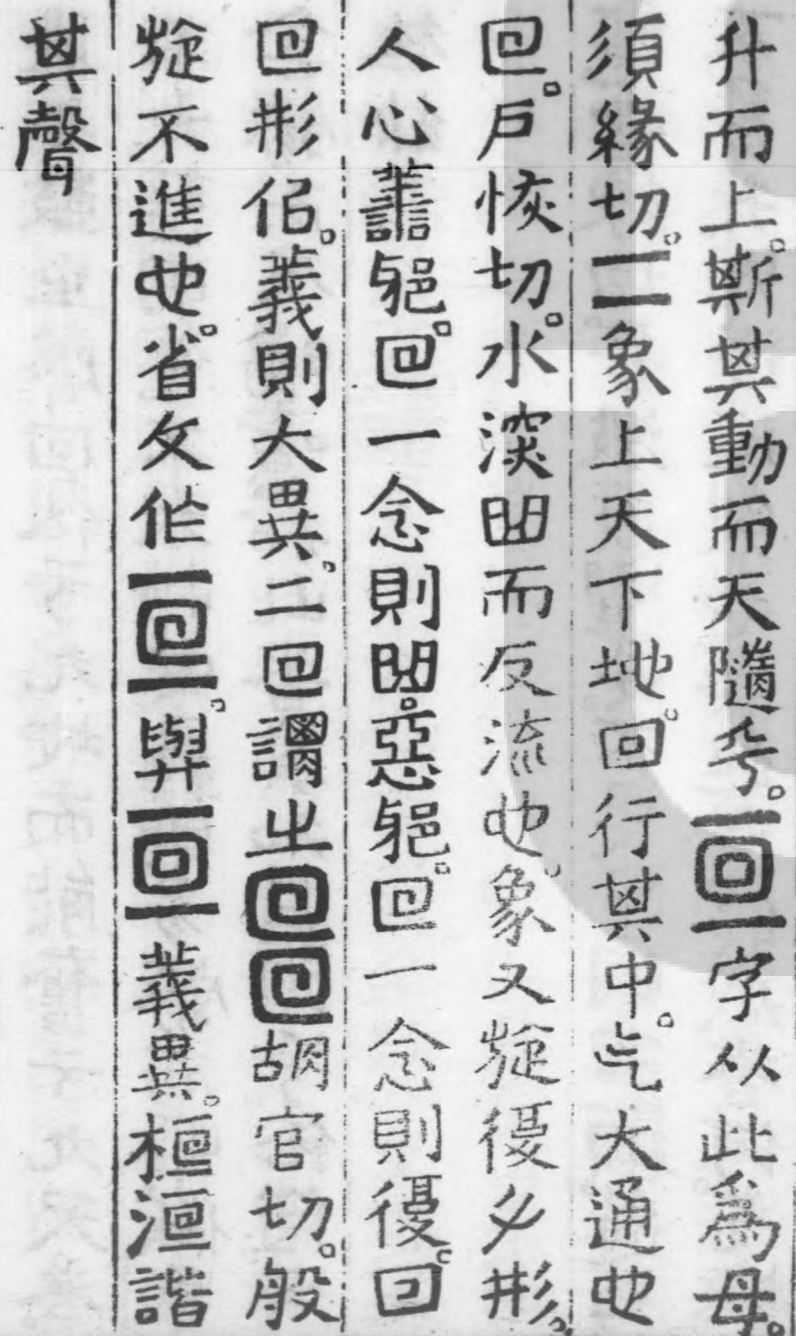 升而上。斯其動而天隨兮。亘字从此為母。
須緣切。二象上天下地。回行其中。气大通也
囘。戶恢切。水深淵而反流也。象又旋復之形。
人心善貌。囘一念則淵。惡貌。囘一念則復。回
囘形侣。義則大異。二囘謂之囘囘胡官切。般
旋不進也。省文作𠄢。與亘義異。桓洹諧
其聲